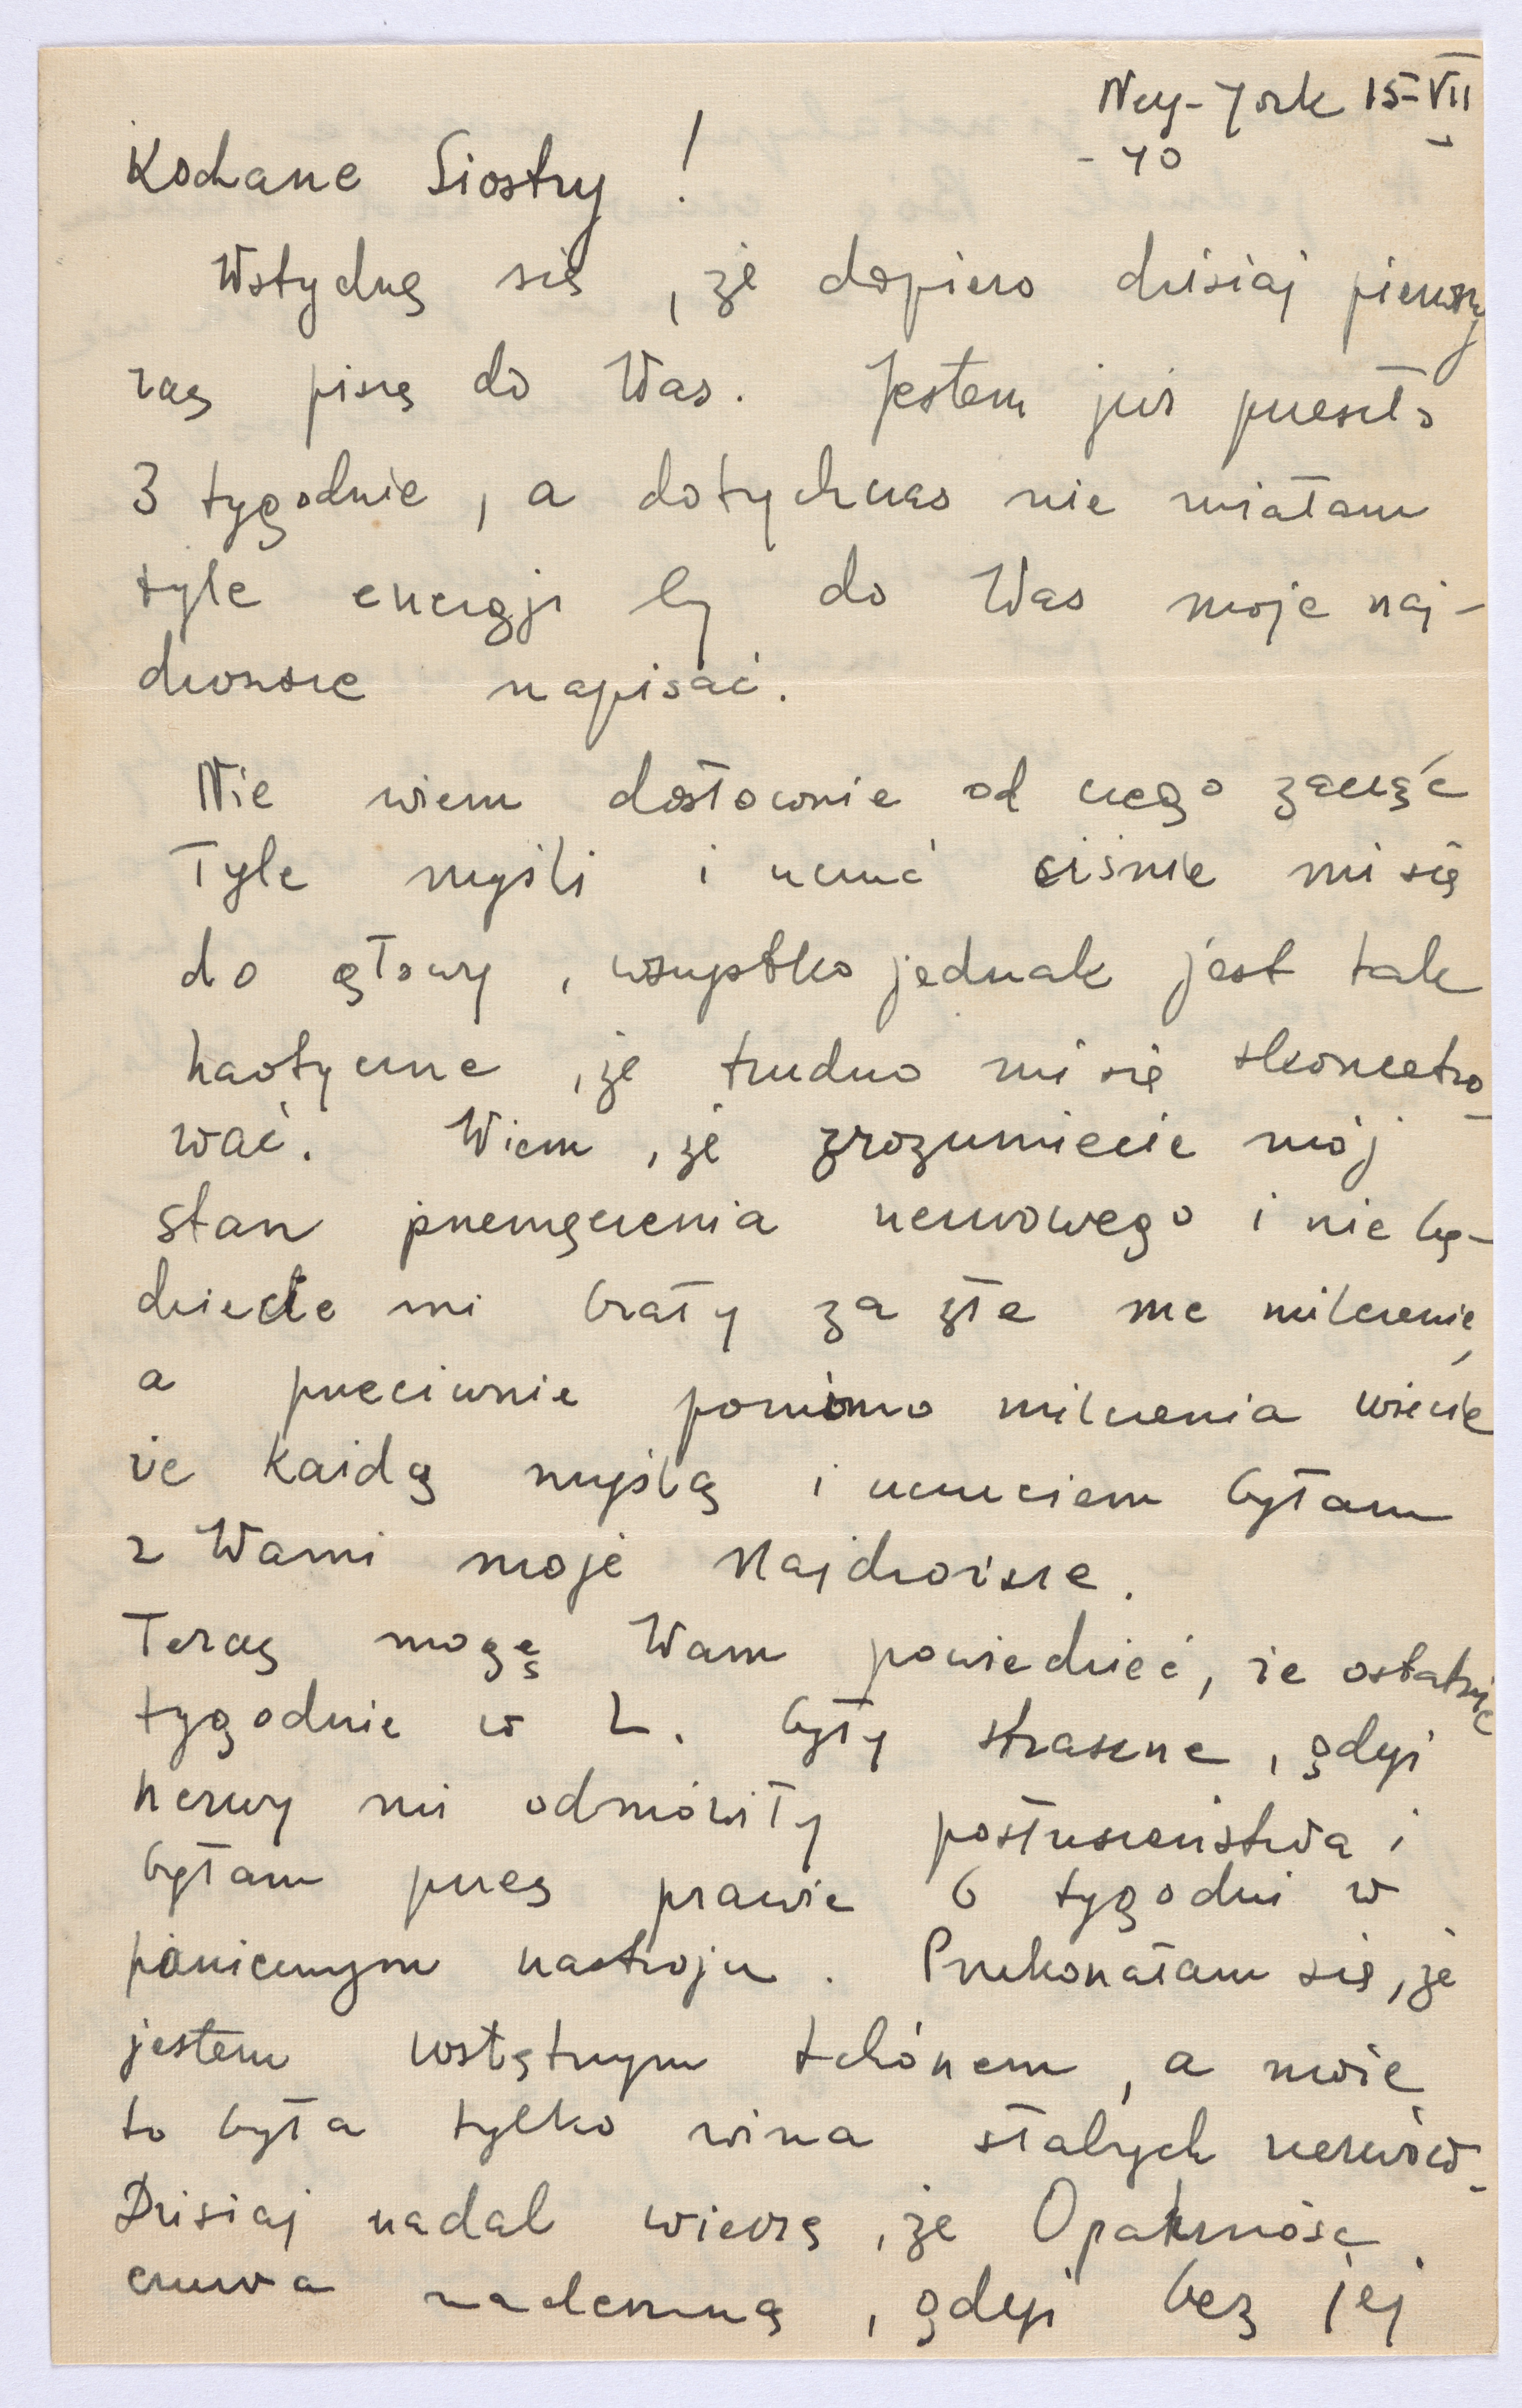 Ney-York 15-VII
- 40
Kochane Siostry!
Wstydzę się, że dopiero dzisiaj pierwszy
raz piszę do Was. Jestem już przeszło
3 tygodnie, a dotychczas nie miałam
tyle energji by do Was moje naj-
droższe napisać.
Nie wiem dosłownie od czego zacząć
Tyle myśli i uczuć ciśnie mi się
do głowy, wszystko jednak jest tak
haotyczne, że trudno mi się skoncetro-
wać. Wiem, że zrozumiecie mój
stan przemęczenia nerwowego i nie bę-
dziecie mi brały za złe me milczenie,
a przeciwnie pomimo milczenia wiecie
że każdą myślą i uczuciem byłam
z Wami moje Najdroższe.
Teraz mogę Wam powiedzieć, że ostatnie
tygodnie w L. były straszne, gdyż
nerwy mi odmówiły posłuszeństwa i
byłam przez prawie 6 tygodni w
panicznym nastroju. Przekonałam się, że
jestem wstętnym tchórzem, a może
to była tylko wina słabych nerwów.
Dzisiaj nadal wierzę, że Opatrzność
czuwa nademną, gdyż bez jej